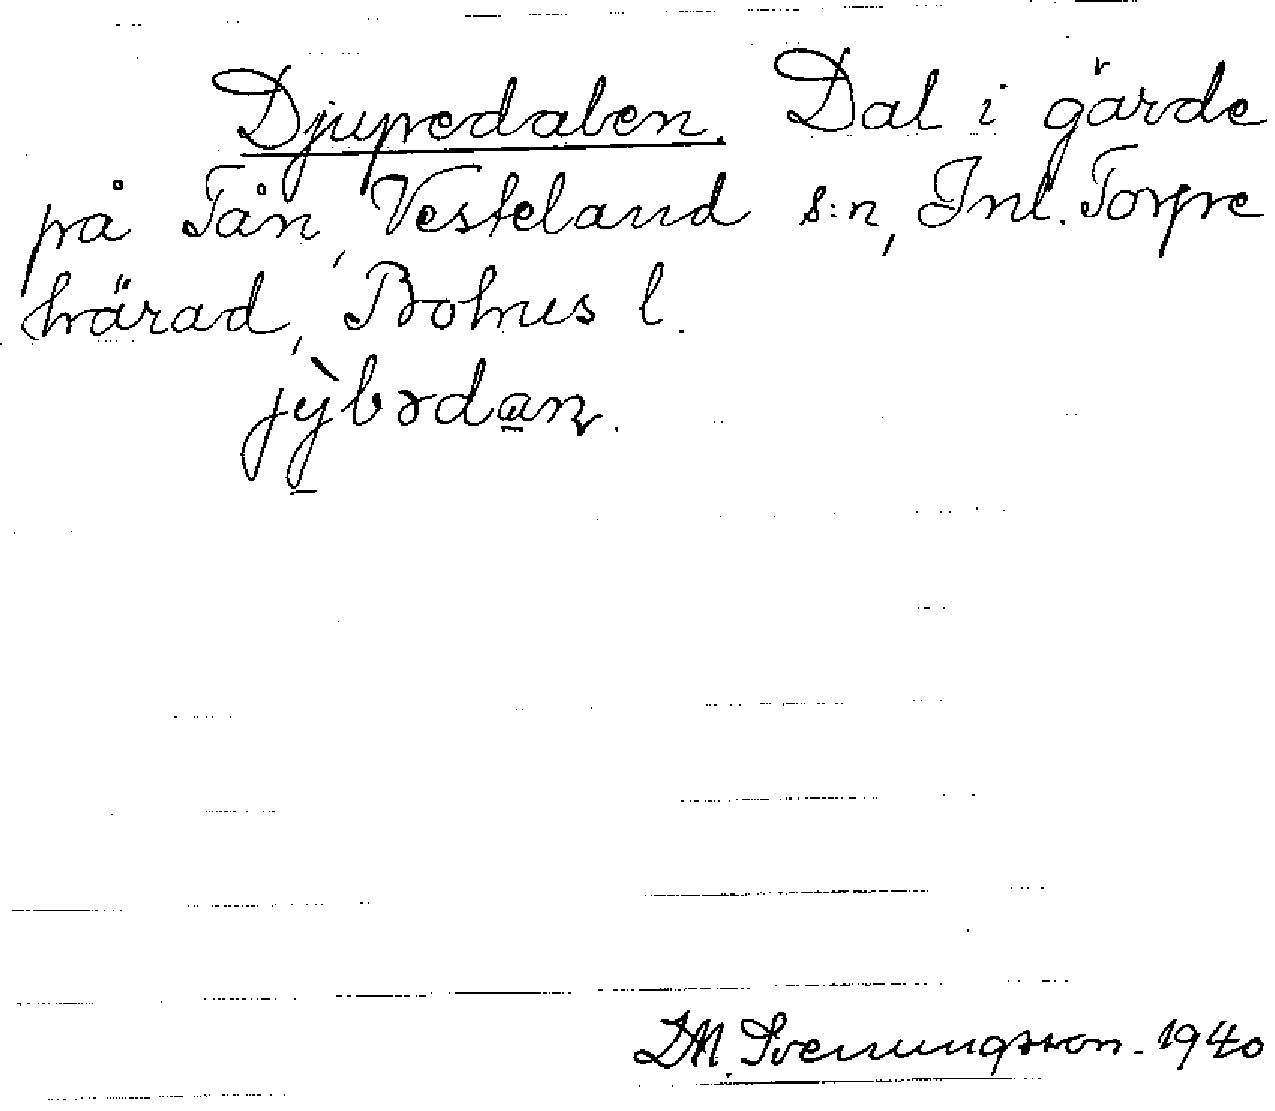 Djupedalen. Dal i gärde
på Tån, Vesteland s:n, Inl. Torpe
härad, Bohus l.
jỳbədan.
D.M. Svenungsson. 1940